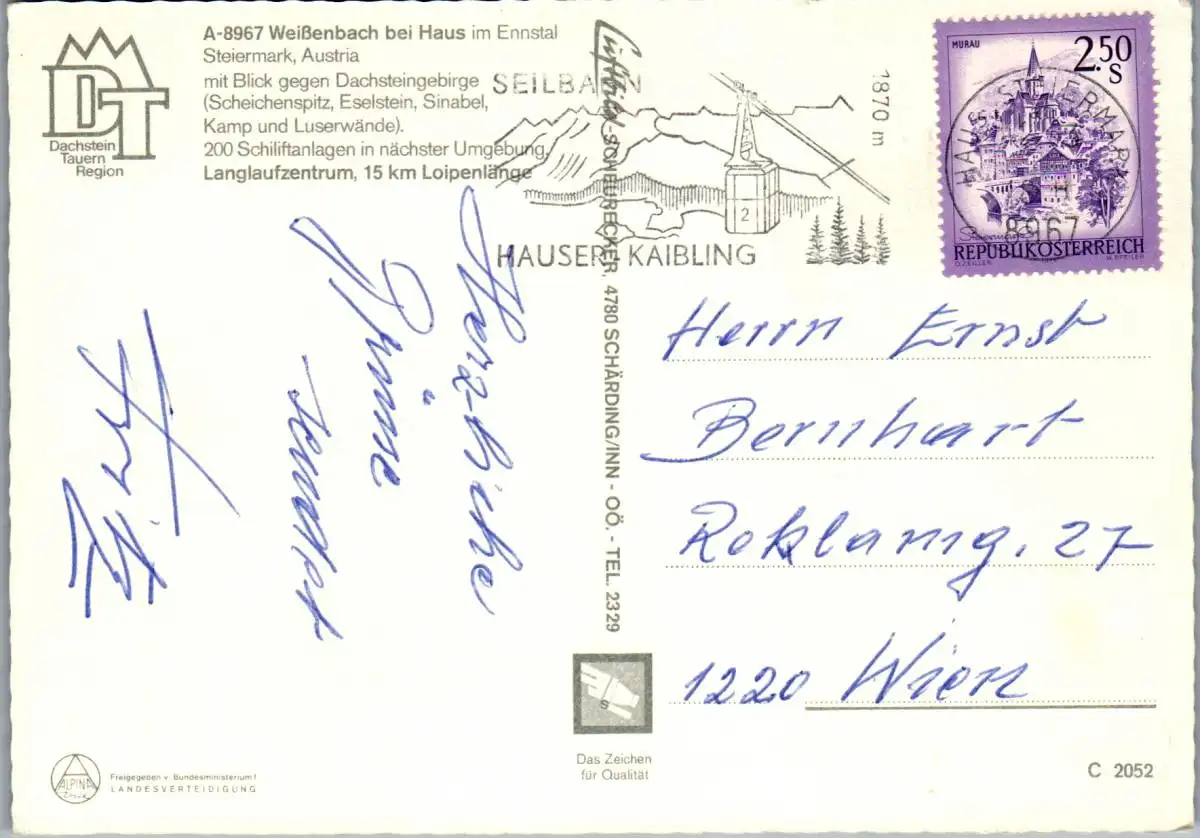 A-8967 Weißenbach bei Haus im Ennstal
Steiermark, Austria
mit Blick gegen Dachsteingebirge
(Scheichenspitz, Eselstein, Sinabel,
Kamp und Luserwände).
200 Schiliftanlagen in nächster Umgebung,
Langlaufzentrum, 15 km Loipenlänge
DT
Dachstein
Tauern
Region
SEILBAHN
1870 m
2
HAUSER KAIBLING
MURAU
2.50
S
HAUS STEIERMARK
8967
REPUBLIK ÖSTERREICH
Luftbild-SCHEURECKER, 4780 SCHÄRDING/INN - OÖ. - TEL. 2329
Herzliche
Grüsse
Herrn Ernst
Bernhart
Roklamg. 27
1220 Wien
Das Zeichen
für Qualität
ALPINA
Freigegeben v. Bundesministerium f
LANDESVERTEIDIGUNG
C 2052